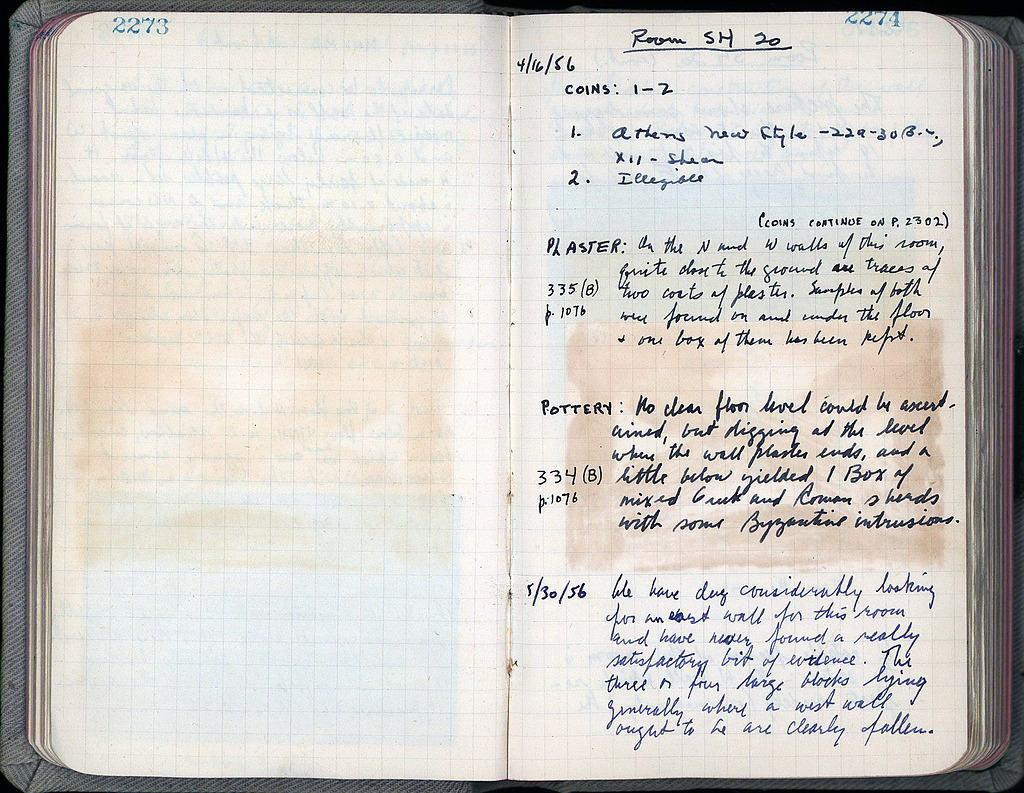 2273
2274
Room SH 20
4/16/56
COINS: 1-2
1. Athens New Style - 229-30 B.C.,
XII - Shear
2. Illegible
(COINS CONTINUE ON P. 2302)
PLASTER: On the N and W walls of this room,
quite close to the ground are traces of
335(B) two coats of plaster. Samples of both
p. 1076 were found on and under the floor
+ one box of them has been kept.
POTTERY: No clear floor level could be ascert-
ained, but digging at the level
where the wall plaster ends, and a
334(B) little below yielded 1 Box of
p. 1076 mixed Greek and Roman sherds
with some Byzantine intrusions.
5/30/56 We have dug considerably looking
for an east wall for this room
and have never found a really
satisfactory bit of evidence. The
three or four large blocks lying
generally where a west wall
ought to be are clearly fallen.